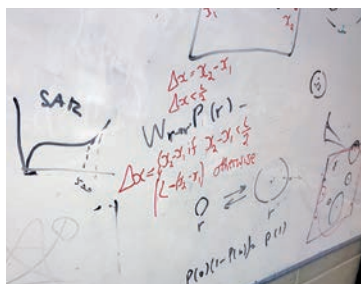 x₁
x₂
SAR
Δx = x₂-x₁
Δx < L/2
P(r) -
Δx = { x₂-x₁ if x₂-x₁ < L/2
L-(x₂-x₁) otherwise
r ⇌ r'
P(0)(1-P(0))
P(1)